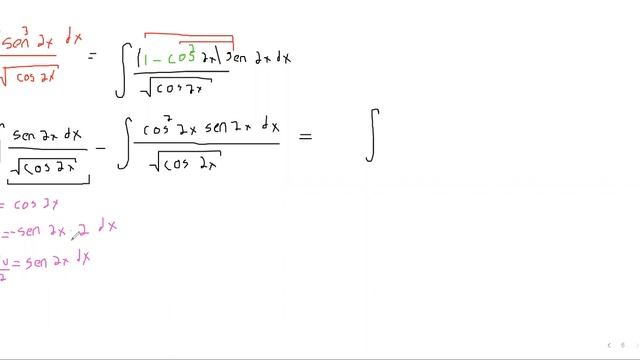 sen³ 2x dx / √cos 2x = ∫ (1 - cos² 2x) sen 2x dx / √cos 2x
sen 2x dx / √cos 2x - ∫ cos² 2x sen 2x dx / √cos 2x = ∫
= cos 2x
= -sen 2x · 2 dx
u/2 = sen 2x dx